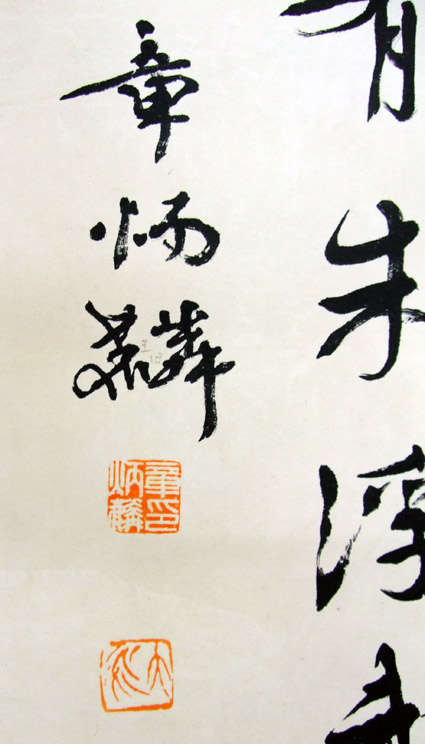 有朱浮
章炳麟
章印
炳麟
太炎